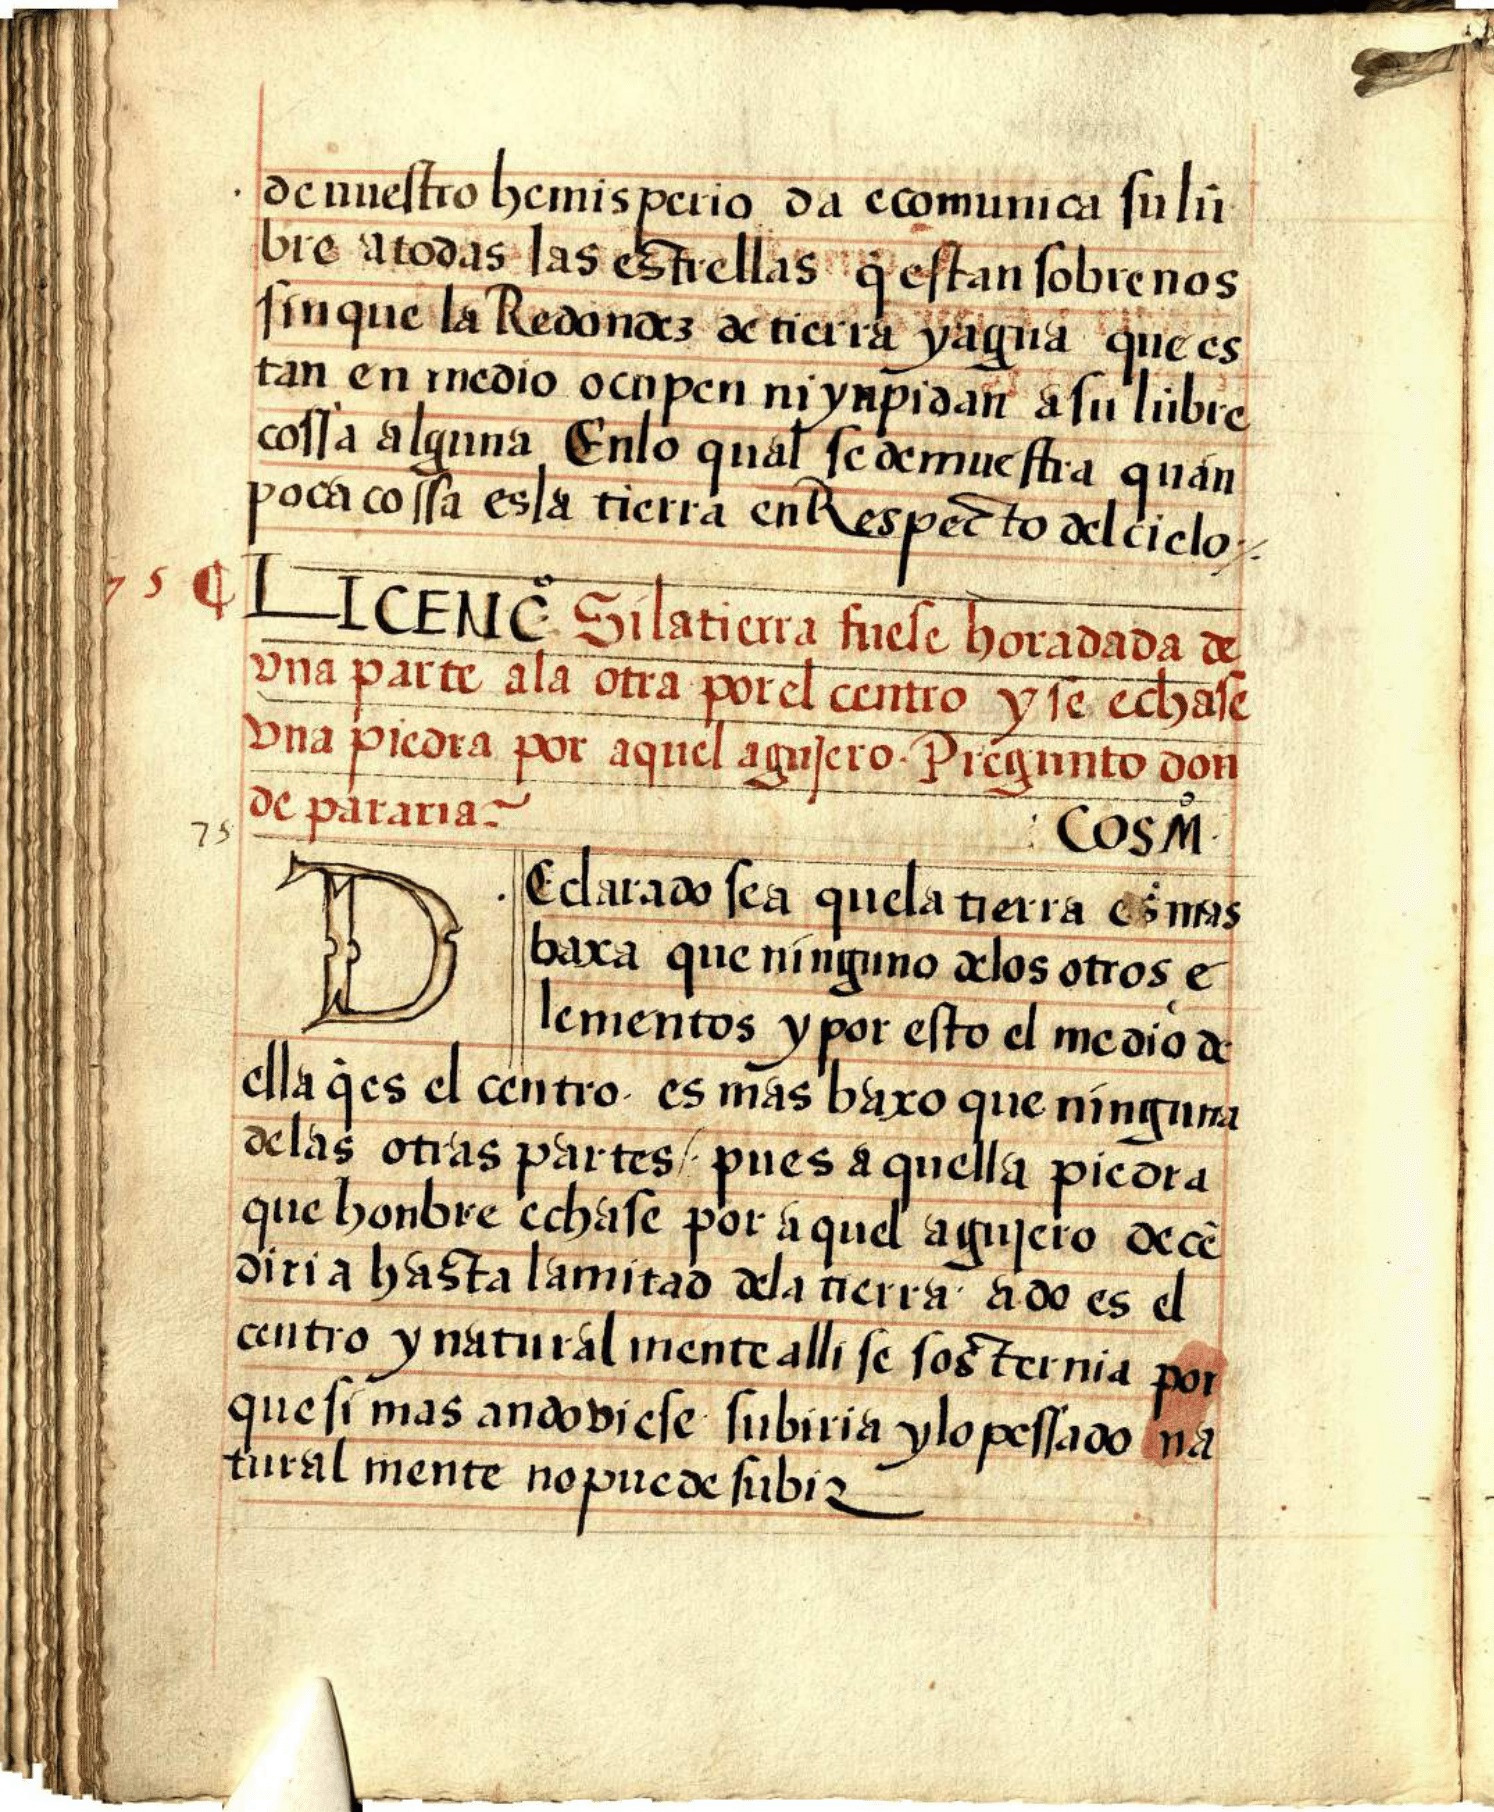 de nuestro hemisperio da e comunica su lū
bre a todas las estrellas q̄ estan sobre nos
sin que la Redondez de tierra y agua que es
tan en medio ocupen ni ynpidan a su lūbre
cossa alguna En lo qual se demuestra quan
poca cossa es la tierra en Respecto del cielo
75 ¶ LICENC̊ Si la tierra fuese horadada de
vna parte a la otra por el centro y se echase
vna piedra por aquel agujero. Pregunto don
de pararia
COSM̊
75
DEclarado sea que la tierra es mas
baxa que ninguno de los otros e
lementos y por esto el medio de
ella q̄ es el centro. es mas baxo que ninguna
de las otras partes / pues aquella piedra
que honbre echase por aquel agujero decē
diria hasta la mitad de la tierra a do es el
centro y natural mente alli se sosternia por
que si mas andoviese subiria y lo pessado na
tural mente no puede subir